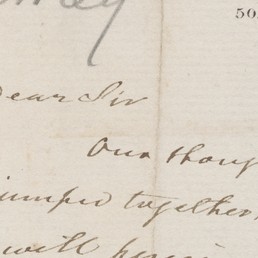 50
Dear Sir
Our thoug
jumped together
will